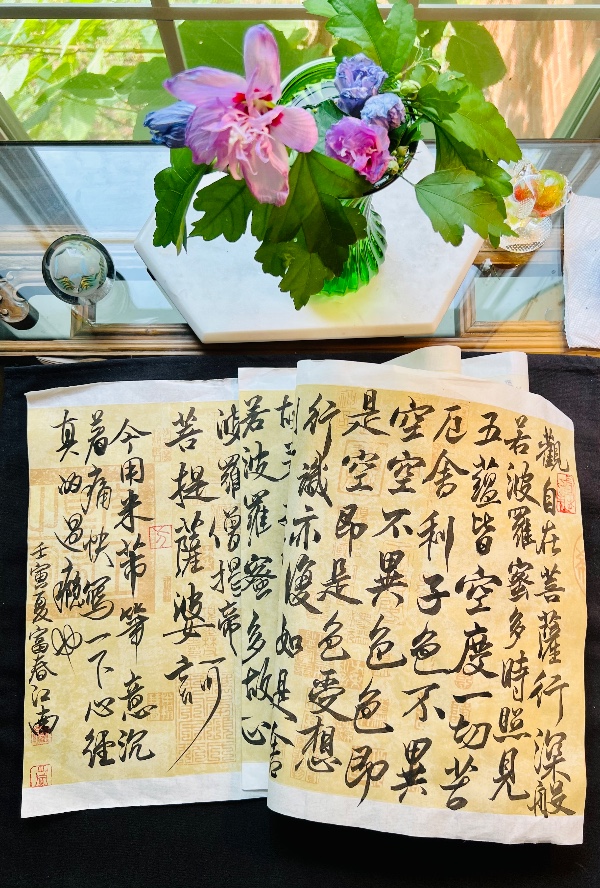 觀自在菩薩行深般
若波羅蜜多時照見
五蘊皆空度一切苦
厄舍利子色不異
空空不異色色即
是空即是色受想
行識亦復如是舍
若波羅蜜多故心
波羅僧揭帝
菩提薩婆訶
今用米芾筆意沉
着痛快寫一下心經
真的過癮也
壬寅夏富春江南